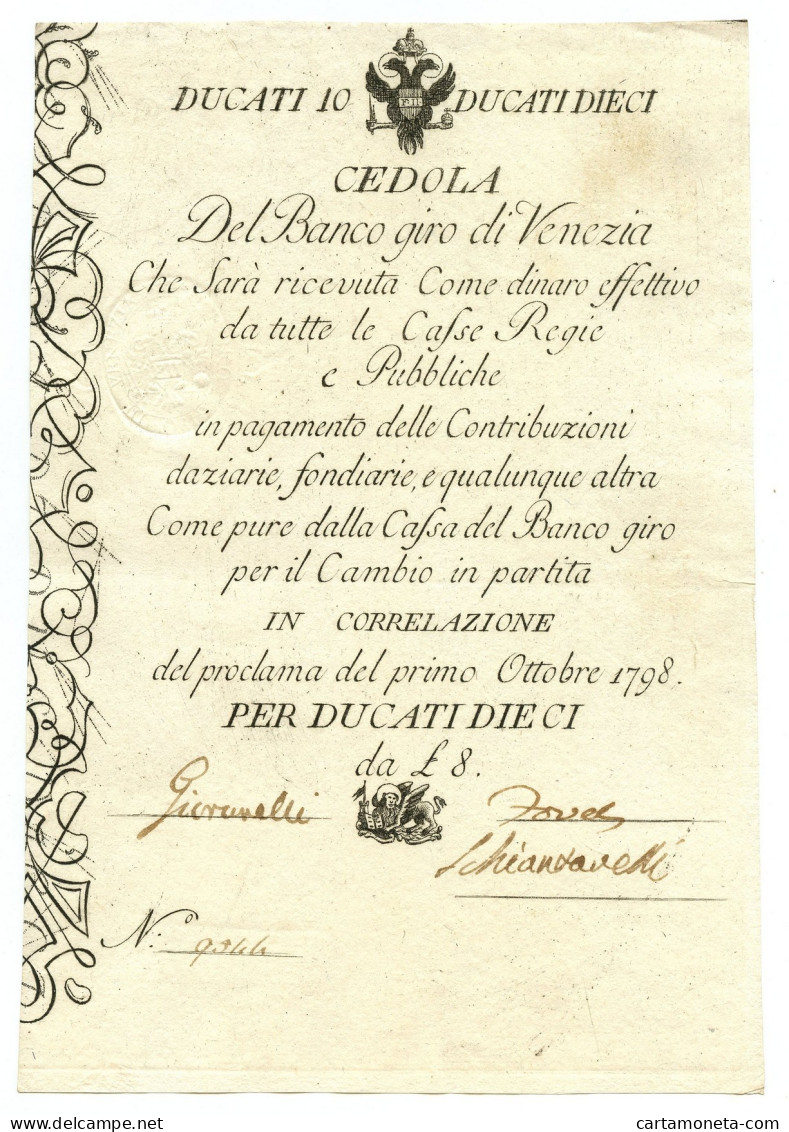 DUCATI 10 DUCATI DIECI
CEDOLA
Del Banco giro di Venezia
Che Sarà ricevuta Come dinaro effettivo
da tutte le Caſse Regie
e Pubbliche
in pagamento delle Contribuzioni
daziarie, fondiarie, e qualunque altra
Come pure dalla Caſsa del Banco giro
per il Cambio in partita
IN CORRELAZIONE
del proclama del primo Ottobre 1798.
PER DUCATI DIECI
da £ 8.
N.º
delcampe.net
cartamoneta-com